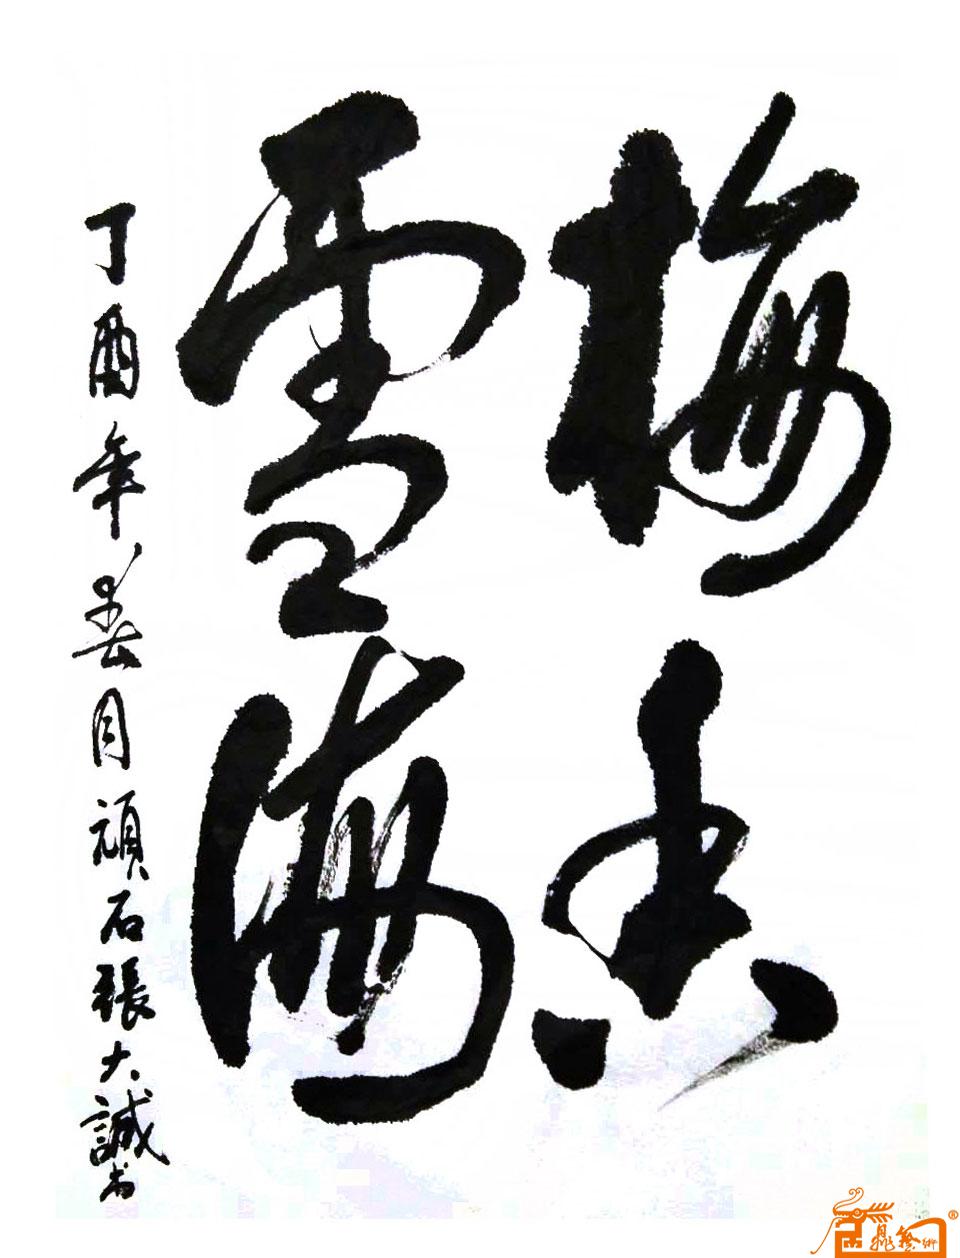 梅香
雪海
丁酉年春月頑石張大誠书